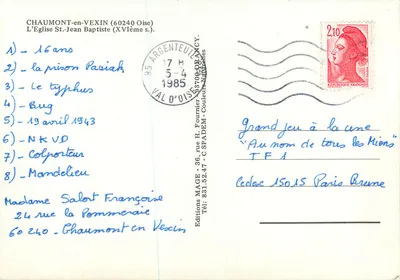 CHAUMONT-en-VEXIN (60240 Oise)
L'Eglise St.-Jean Baptiste (XVIème s.)
1) - 16 ans
2) - la prison Pawiak
3) - Le typhus
4) - Bug
5) - 19 avril 1943
6) - NKVD
7) - Colporteur
8) - Mandelieu
Madame Salort Françoise
24 rue la Pommeraie
60240 - Chaumont en Vexin
Editions MAGE - 36, rue H. Fournier - 93700 DRANCY.
Tél : 831.52.47 - C SPADEM - Couleurs Naturelles
95 ARGENTEUIL
17 H
5-4
1985
VAL D'OISE
2,10
Grand jeu à la une
"Au nom de tous les Miens"
TF1
Cedex 15015 Paris Brune